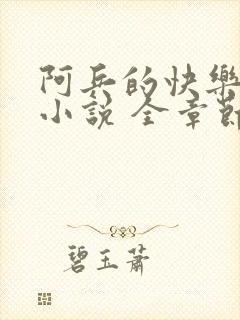 阿兵的快樂
小說 全章節
碧玉蕭